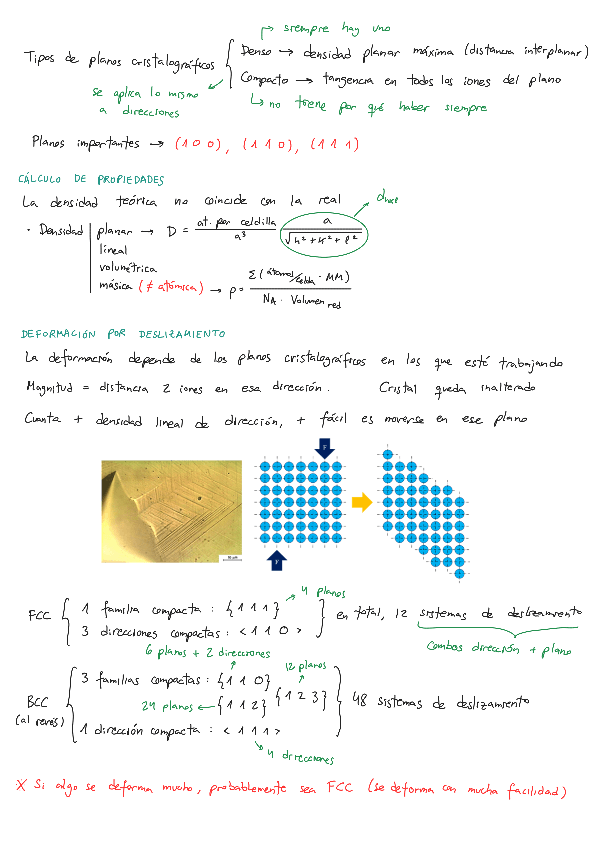 siempre hay uno
Tipos de planos cristalográficos
Denso → densidad planar máxima (distancia interplanar)
Compacto → tangencia en todos los iones del plano
se aplica lo mismo a direcciones
no tiene por qué haber siempre
Planos importantes → (1 0 0), (1 1 0), (1 1 1)
CÁLCULO DE PROPIEDADES
La densidad teórica no coincide con la real
· Densidad
planar → D = at. por celdilla / a³ · a / √h² + k² + l²
lineal
volumétrica
másica (≠ atómica) → ρ = Σ (átomos/celda · MM) / NA · Volumen red
DEFORMACIÓN POR DESLIZAMIENTO
La deformación depende de los planos cristalográficos en los que esté trabajando
Magnitud = distancia 2 iones en esa dirección. Cristal queda inalterado
Cuanta + densidad lineal de dirección, + fácil es moverse en ese plano
F
F
4 planos
FCC
1 familia compacta : {1 1 1}
3 direcciones compactas : < 1 1 0 >
en total, 12 sistemas de deslizamiento
combos dirección + plano
6 planos + 2 direcciones
12 planos
BCC (al revés)
3 familias compactas : {1 1 0}
24 planos ← {1 1 2} {1 2 3}
48 sistemas de deslizamiento
1 dirección compacta : < 1 1 1 >
4 direcciones
Si algo se deforma mucho, probablemente sea FCC (se deforma con mucha facilidad)